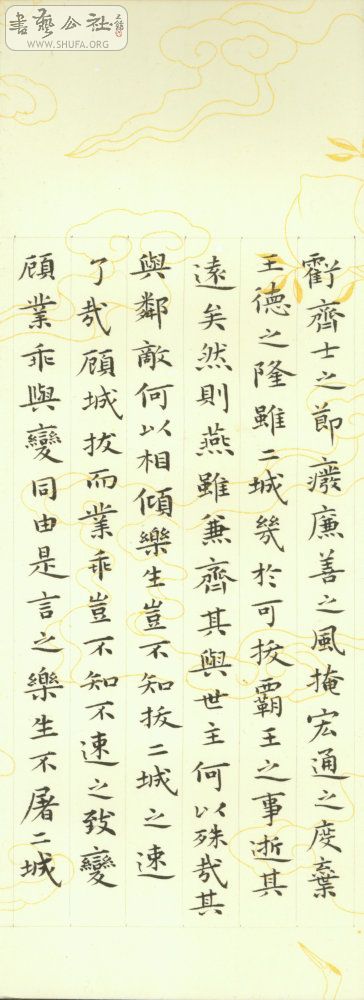 書藝公社
WWW.SHUFA.ORG
虧齊士之節癈廉善之風掩宏通之度棄
王德之隆雖二城幾於可拔霸王之事逝其
遠矣然則燕雖兼齊其與世主何以殊哉其
與鄰敵何以相傾樂生豈不知拔二城之速
了哉顧城拔而業乖豈不知不速之致變
顧業乖與變同由是言之樂生不屠二城